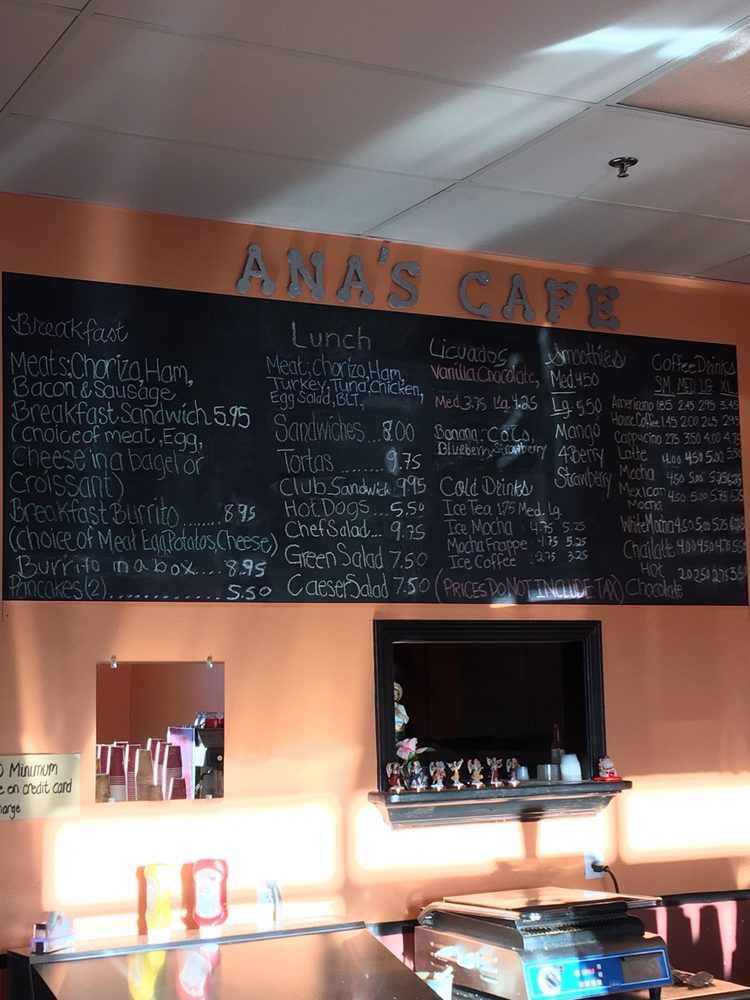 ANA'S CAFE
Breakfast
Meats: Chorizo, Ham,
Bacon & Sausage
Breakfast Sandwich 5.95
(choice of meat, Egg,
Cheese in a bagel or
croissant)
Breakfast Burrito ....... 8.95
(choice of Meat Egg, Potatos, Cheese)
Burrito in a box .... 8.95
Pancakes (2) .............. 5.50
Lunch
Meat; chorizo, Ham
Turkey, Tuna, chicken,
Egg Salad, BLT,
Sandwiches... 8.00
Tortas ......... 9.75
Club Sandwich 9.95
Hot Dogs .... 5.50
Chef Salad... 9.75
Green Salad 7.50
Caeser Salad 7.50
Licuados
Vanilla, Chocolate,
Med 3.75 Lg. 4.25
Banana, CoCo,
Blueberry Strawberry
Cold Drinks
Ice Tea 1.75 Med. Lg.
Ice Mocha . 4.75 5.25
Mocha Frappe 4.75 5.25
Ice Coffee . 2.75 3.25
(PRICES DO NOT INCLUDE TAX)
Smoothies
Med 4.50
Lg 5.50
Mango
4 Berry
Strawberry
Coffee Drinks
SM MED LG XL
Americano 1.85 2.45 2.95 3.45
House Coffee 1.45 2.00 2.45 2.95
Cappucino 2.75 3.50 4.00
Latte 4.00 4.50 5.00
Mocha 4.50 5.00
Mexican 4.50 5.00
Mocha
White Mocha 4.50 5.00
Chai latte 4.00 4.50
Hot 2.0 2.50 2.75
Chocolate
Minimum
on credit card